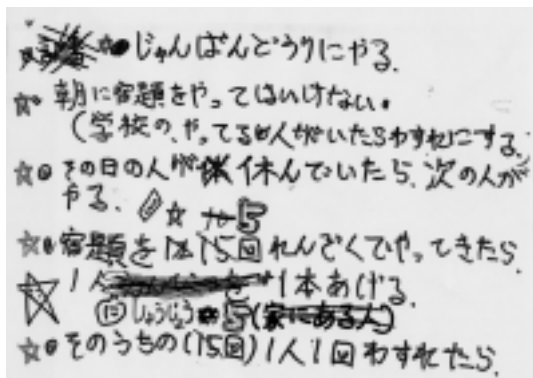 ☆●じゅんばんどうりにやる.
☆●朝に宿題をやってはいけない。
(学校の、やってる人がいたらわすれにする.
☆●その日の人が休んでいたら、次の人が
やる. ☆ 5
☆●宿題を15回れんぞくでやってきたら
☆ 1人 1本あげる.
しょうじょう 5(家にある人)
☆●そのうちの(15回)1人1回わすれたら.